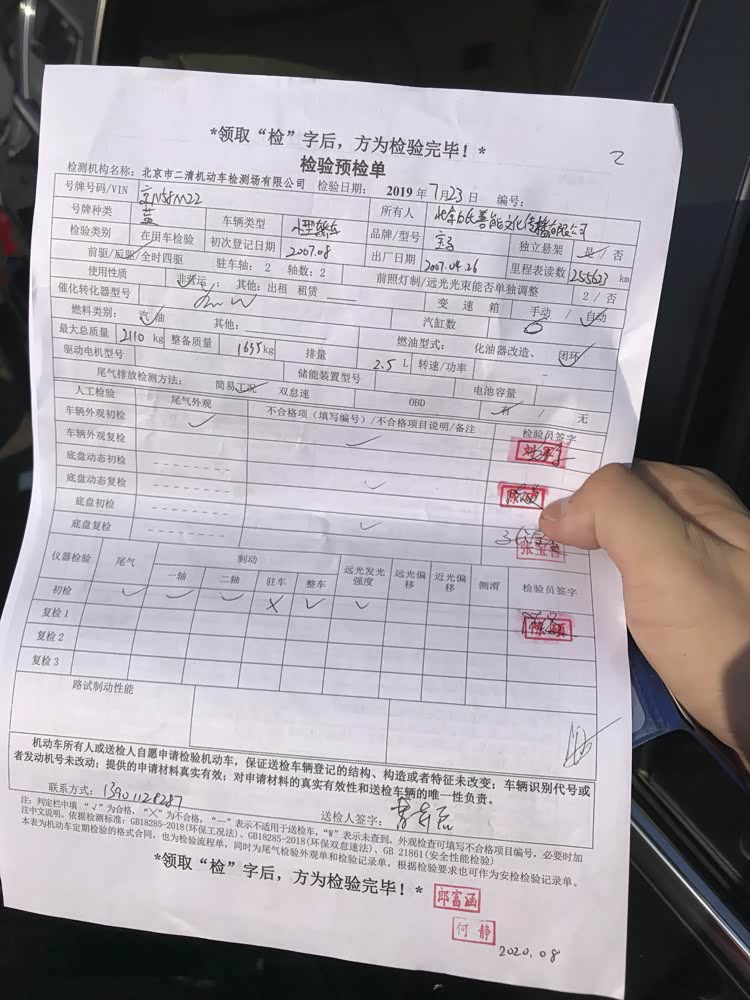 *领取“检”字后，方为检验完毕！*
2
检验预检单
检测机构名称：北京市二清机动车检测场有限公司 检验日期： 2019 年 7月 23 日 编号：
号牌号码/VIN 京N58M22 所有人
号牌种类 蓝 车辆类型 小型轿车 品牌/型号 宝马 独立悬架 是／否
检验类别 在用车检验 初次登记日期 2007.08 出厂日期 2007.04.26 里程表读数 255623 km
前驱/后驱/全时四驱 驻车轴： 2 轴数：2 前照灯制/远光光束能否单独调整 2 / 否
使用性质 非营运； 其他：出租 租赁
催化转化器型号 变 速 箱 手动 / 自动
燃料类别： 汽油 其他： 汽缸数 6
最大总质量 2110 kg 整备质量 1635kg 排量 2.5 L 燃油型式： 化油器改造、 闭环
驱动电机型号 储能装置型号 转速/功率 -
尾气排放检测方法： 简易工况 双怠速 OBD 有 / 无 电池容量
人工检验 尾气外观 不合格项（填写编号）/不合格项目说明/备注 检验员签字
车辆外观初检 ✓
车辆外观复检 ✓
底盘动态初检 --------
底盘动态复检 -------- ✓
底盘初检 --------
底盘复检 -------- ✓ 张宝善
仪器检验 尾气 制动 远光发光强度 远光偏移 近光偏移 侧滑 检验员签字
一轴 二轴 驻车 整车
初检 ✓ ✓ ✓ X ✓ ✓
复检1
复检2
复检3
路试制动性能
机动车所有人或送检人自愿申请检验机动车，保证送检车辆登记的结构、构造或者特征未改变；车辆识别代号或
者发动机号未改动；提供的申请材料真实有效；对申请材料的真实有效性和送检车辆的唯一性负责。
联系方式：13901128287 送检人签字：
注：判定栏中填“√”为合格，“X”为不合格，“—”表示不适用于送检车，“W”表示未查到。外观检查可填写不合格项目编号，必要时加
注中文说明。依据检测标准：GB18285-2018(环保工况法)、GB18285-2018(环保双怠速法)、GB 21861(安全性能检验)
本表为机动车定期检验的格式合同，也为检验流程单，同时为尾气检验外观单和检验记录单，根据检验要求也可作为安检检验记录单。
*领取“检”字后，方为检验完毕！*
郎富涵
何静
2020.08